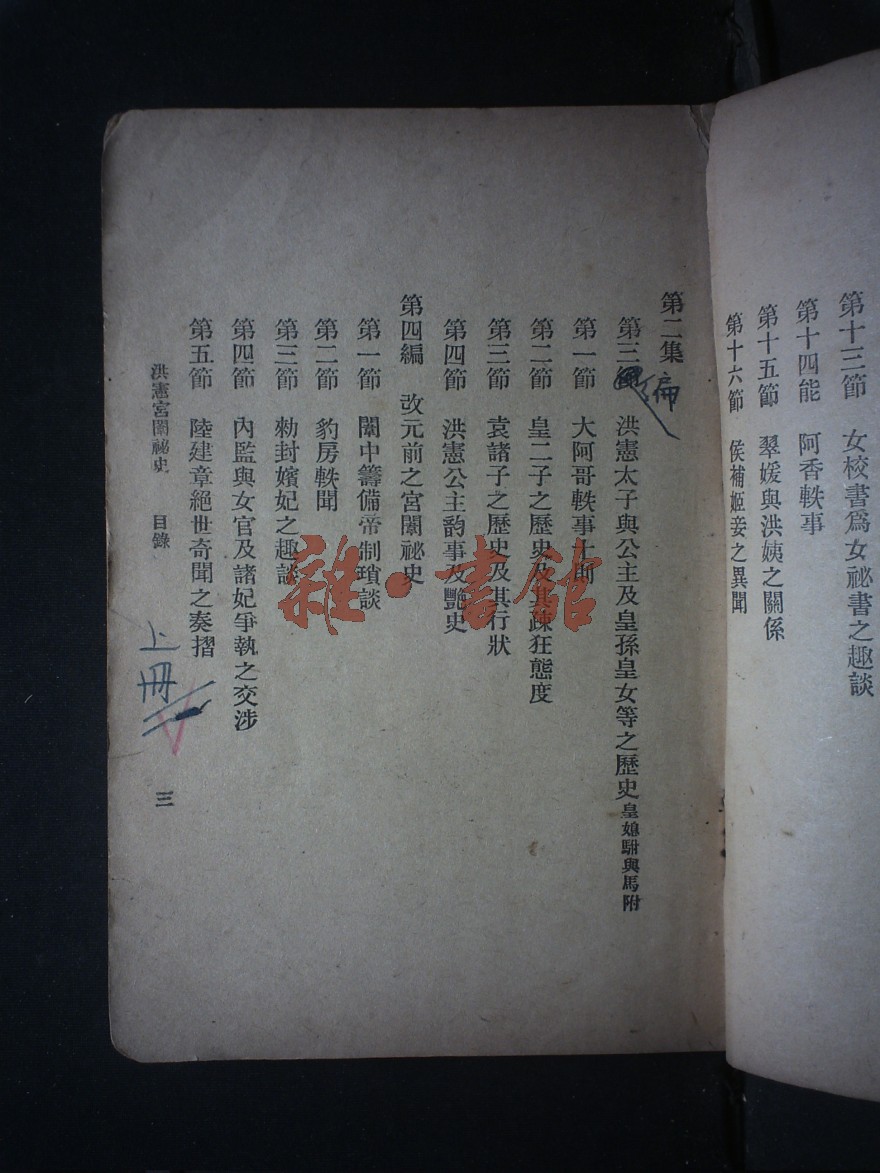 第十三節　女校書爲女祕書之趣談
第十四能　阿香軼事
第十五節　翠媛與洪姨之關係
第十六節　侯補姬妾之異聞
第二集
編
第三編　洪憲太子與公主及皇孫皇女等之歷史皇媳駙與馬附
第一節　大阿哥軼事上則
第二節　皇二子之歷史及其疎狂態度
第三節　袁諸子之歷史及其行狀
第四節　洪憲公主韵事及艷史
第四編　改元前之宮闈祕史
第一節　闈中籌備帝制瑣談
第二節　豹房軼聞
第三節　勅封嬪妃之趣談
第四節　內監與女官及諸妃爭執之交涉
第五節　陸建章絕世奇聞之奏摺
洪憲宮闈祕史　目錄
三
上冊
雜·書館